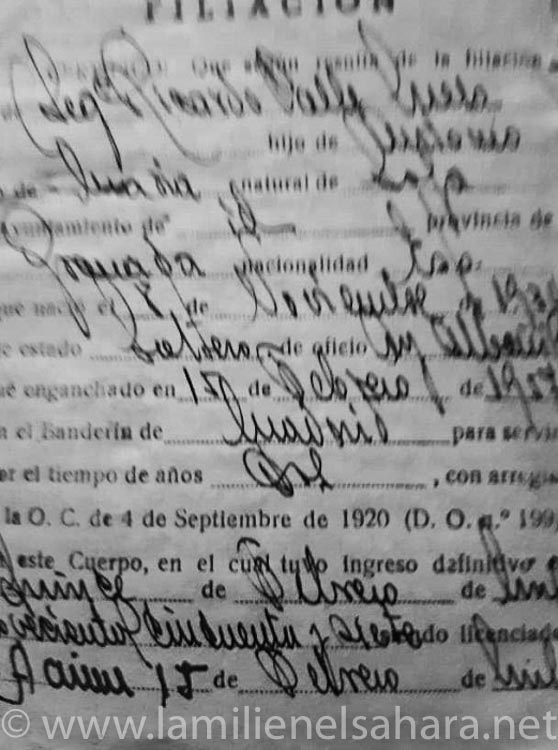 FILIACIÓN
Que según resulta de la filiación
Ricardo Valle
hijo de
de María natural de Loja
yuntamiento de id provincia de
Granada nacionalidad Esp.
que nació el 8 de Noviembre
e estado Soltero de oficio
ué enganchado en 15 de Febrero de 1957
a el Banderín de Madrid para servir
or el tiempo de años , con arreglo
la O. C. de 4 de Septiembre de 1920 (D. O. n.º 199
este Cuerpo, en el cual tuvo ingreso dafinitivo e
quince de Febrero de mil
novecientos cincuenta y siete do licenciado
A aiun 15 de Febrero de mil
© www.lamilienelsahara.net